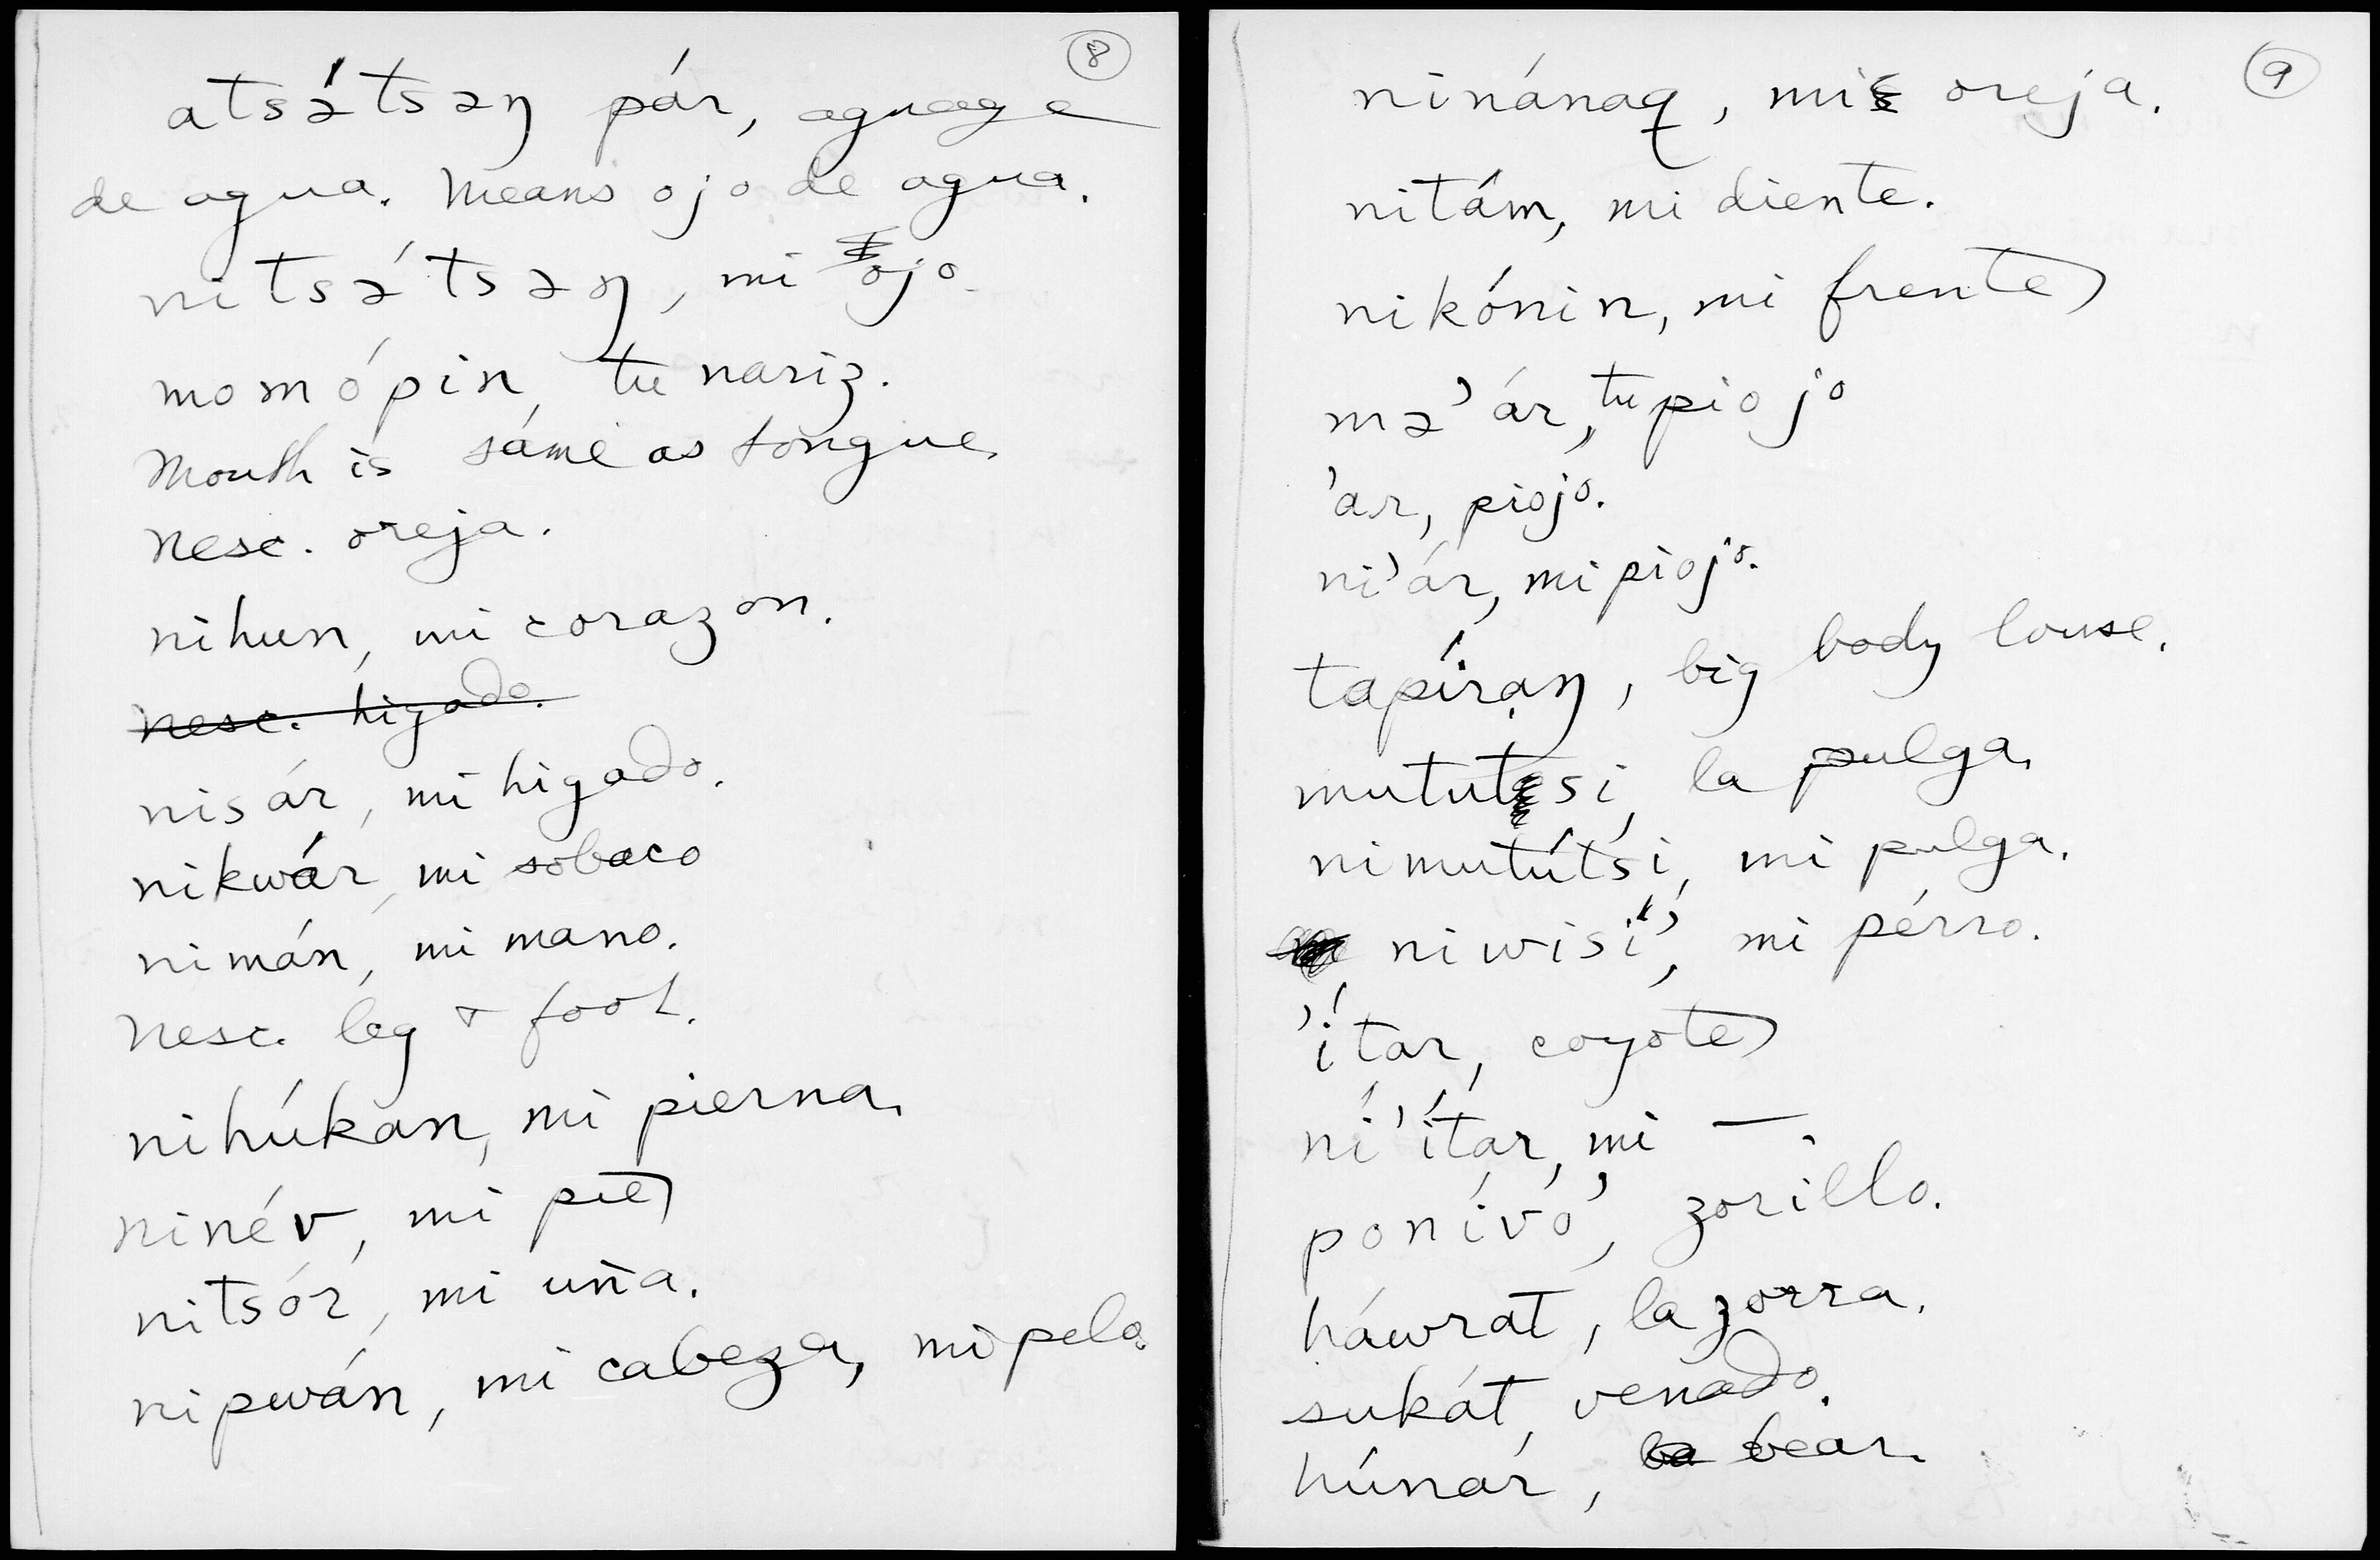 8
atsə́tsəŋ pár, aguage
de agua. Means ojo de agua.
nitsə́tsəŋ, mi ojo.
momópin, tu nariz.
Mouth is same as tongue.
Nesc. oreja.
nihun, mi corazon.
Nesc. higado.
nisár, mi higado.
nikwár, mi sobaco
nimán, mi mano.
Nesc. leg + foot.
nihúkan, mi pierna.
ninév, mi pie)
nitsór, mi uña.
nipwán, mi cabeza, mi pelo.
9
ninánaq, mi oreja.
nitám, mi diente.
nikónin, mi frente)
mə'ár, tu piojo
'ar, piojo.
ni'ár, mi piojo.
tapíraŋ, big body louse.
mututsi, la pulga.
nimutútsi, mi pulga.
niwisí', mi perro.
'ítar, coyote)
ní'ítar, mi —.
ponívó', zorillo.
háwrat, la zorra.
sukát, venado.
húnar, bear.